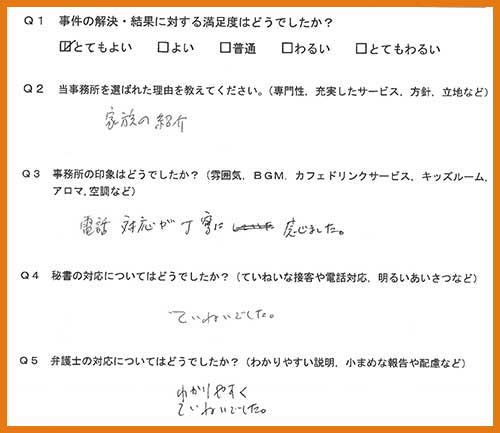 Q1 事件の解決・結果に対する満足度はどうでしたか？
☑とてもよい □よい □普通 □わるい □とてもわるい
Q2 当事務所を選ばれた理由を教えてください。（専門性，充実したサービス，方針，立地など）
家族の紹介
Q3 事務所の印象はどうでしたか？（雰囲気，BGM，カフェドリンクサービス，キッズルーム，
アロマ，空調など）
電話対応が丁寧に 応じました。
Q4 秘書の対応についてはどうでしたか？（ていねいな接客や電話対応，明るいあいさつなど）
ていねいでした。
Q5 弁護士の対応についてはどうでしたか？（わかりやすい説明，小まめな報告や配慮など）
わかりやすく
ていねいでした。